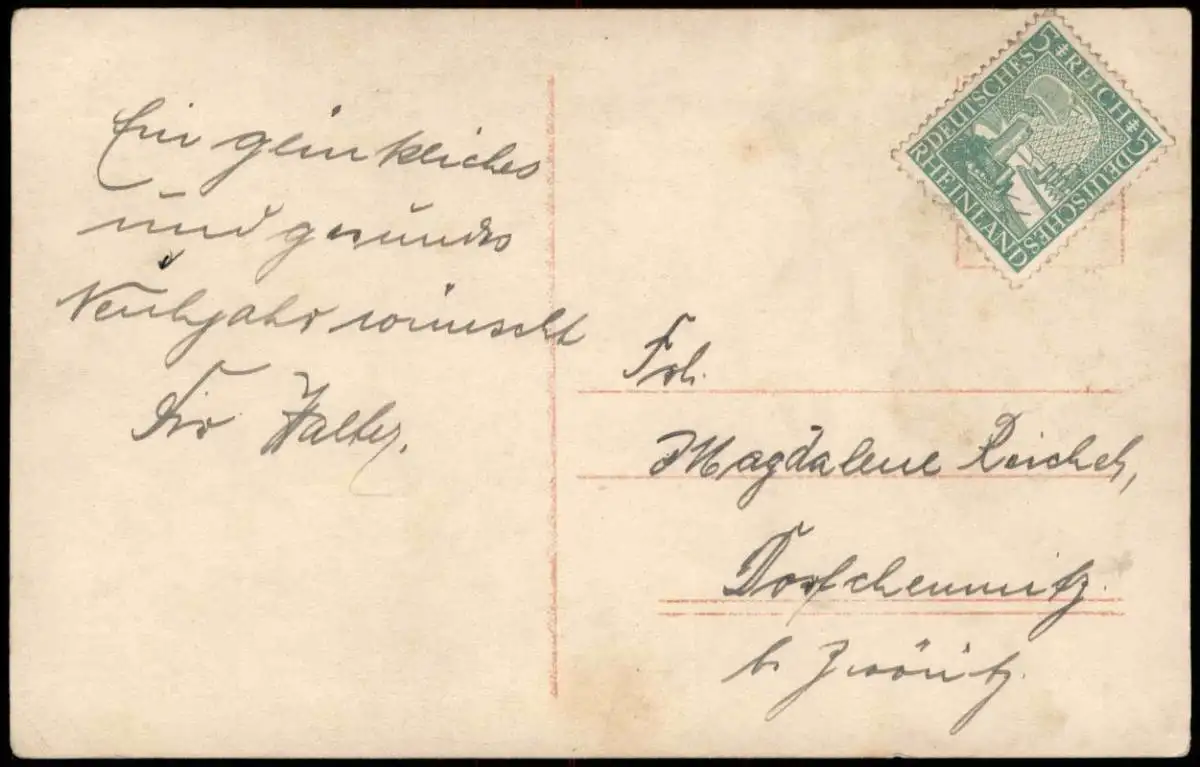 Ein glünkliches
und gesundes
Neuhjahr wünscht
Walter.
5 DEUTSCHES REICH 5
DEUTSCHES
RHEINLAND
Frl.
Magdalene Reichel,
Dorfchemnitz
b. Zwönitz.